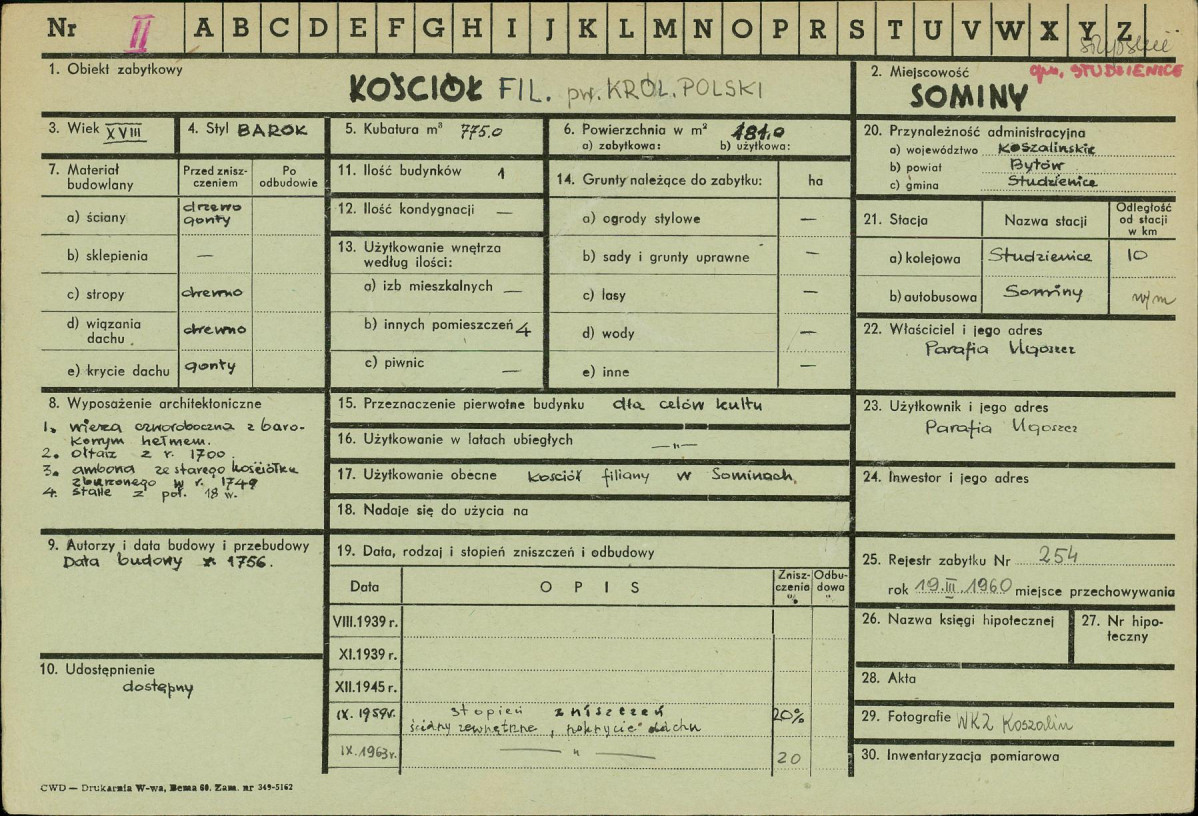 Nr II A B C D E F G H I J K L M N O P R S T U V W X Y Z
gm. STUDZIENICE
1. Obiekt zabytkowy
KOŚCIÓŁ FIL. pw. KRÓL. POLSKI
2. Miejscowość
SOMINY
3. Wiek XVIII
4. Styl BAROK
5. Kubatura m³ 775.0
6. Powierzchnia w m² 181.0
a) zabytkowa: b) użytkowa:
7. Materiał budowlany
Przed znisz-
czeniem
Po
odbudowie
a) ściany drzewo
gonty
b) sklepienia —
c) stropy drewno
d) wiązania
dachu drewno
e) krycie dachu gonty
8. Wyposażenie architektoniczne
1. wieża czworoboczna z baro-
kowym hełmem.
2. ołtarz z r. 1700
3. ambona ze starego kościółka
zburzonego w r. 1749
4. stalle z poł. 18 w.
9. Autorzy i data budowy i przebudowy
Data budowy 1756.
10. Udostępnienie
dostępny
11. Ilość budynków 1
12. Ilość kondygnacji —
13. Użytkowanie wnętrza
według ilości:
a) izb mieszkalnych —
b) innych pomieszczeń 4
c) piwnic —
14. Grunty należące do zabytku: ha
a) ogrody stylowe —
b) sady i grunty uprawne —
c) lasy —
d) wody —
e) inne —
15. Przeznaczenie pierwotne budynku dla celów kultu
16. Użytkowanie w latach ubiegłych —„—
17. Użytkowanie obecne kościół filiany w Sominach,
18. Nadaje się do użycia na
19. Data, rodzaj i stopień zniszczeń i odbudowy
Data OPIS Znisz-
czenia
%
Odbu-
dowa
"
VIII.1939 r.
XI.1939 r.
XII.1945 r.
IX. 1959r. stopień zniszczeń 20%
ściany zewnętrzne, pokrycie dachu
IX.1963r. —„— 20
20. Przynależność administracyjna
a) województwo Koszalińskie
b) powiat Bytów
c) gmina Studzienice
21. Stacja Nazwa stacji Odległość
od stacji
w km
a) kolejowa Studzienice 10
b) autobusowa Sominy w/m
22. Właściciel i jego adres
Parafia Ugoszcz
23. Użytkownik i jego adres
Parafia Ugoszcz
24. Inwestor i jego adres
25. Rejestr zabytku Nr 254
rok 19.III.1960 miejsce przechowywania
26. Nazwa księgi hipotecznej
27. Nr hipo-
teczny
28. Akta
29. Fotografie WKZ Koszalin
30. Inwentaryzacja pomiarowa
CWD — Drukarnia W-wa, Bema 60. Zam. nr 349-5162